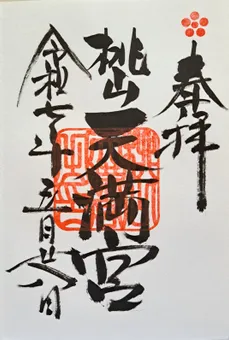 奉拝
桃山天満宮
令和七年五月日